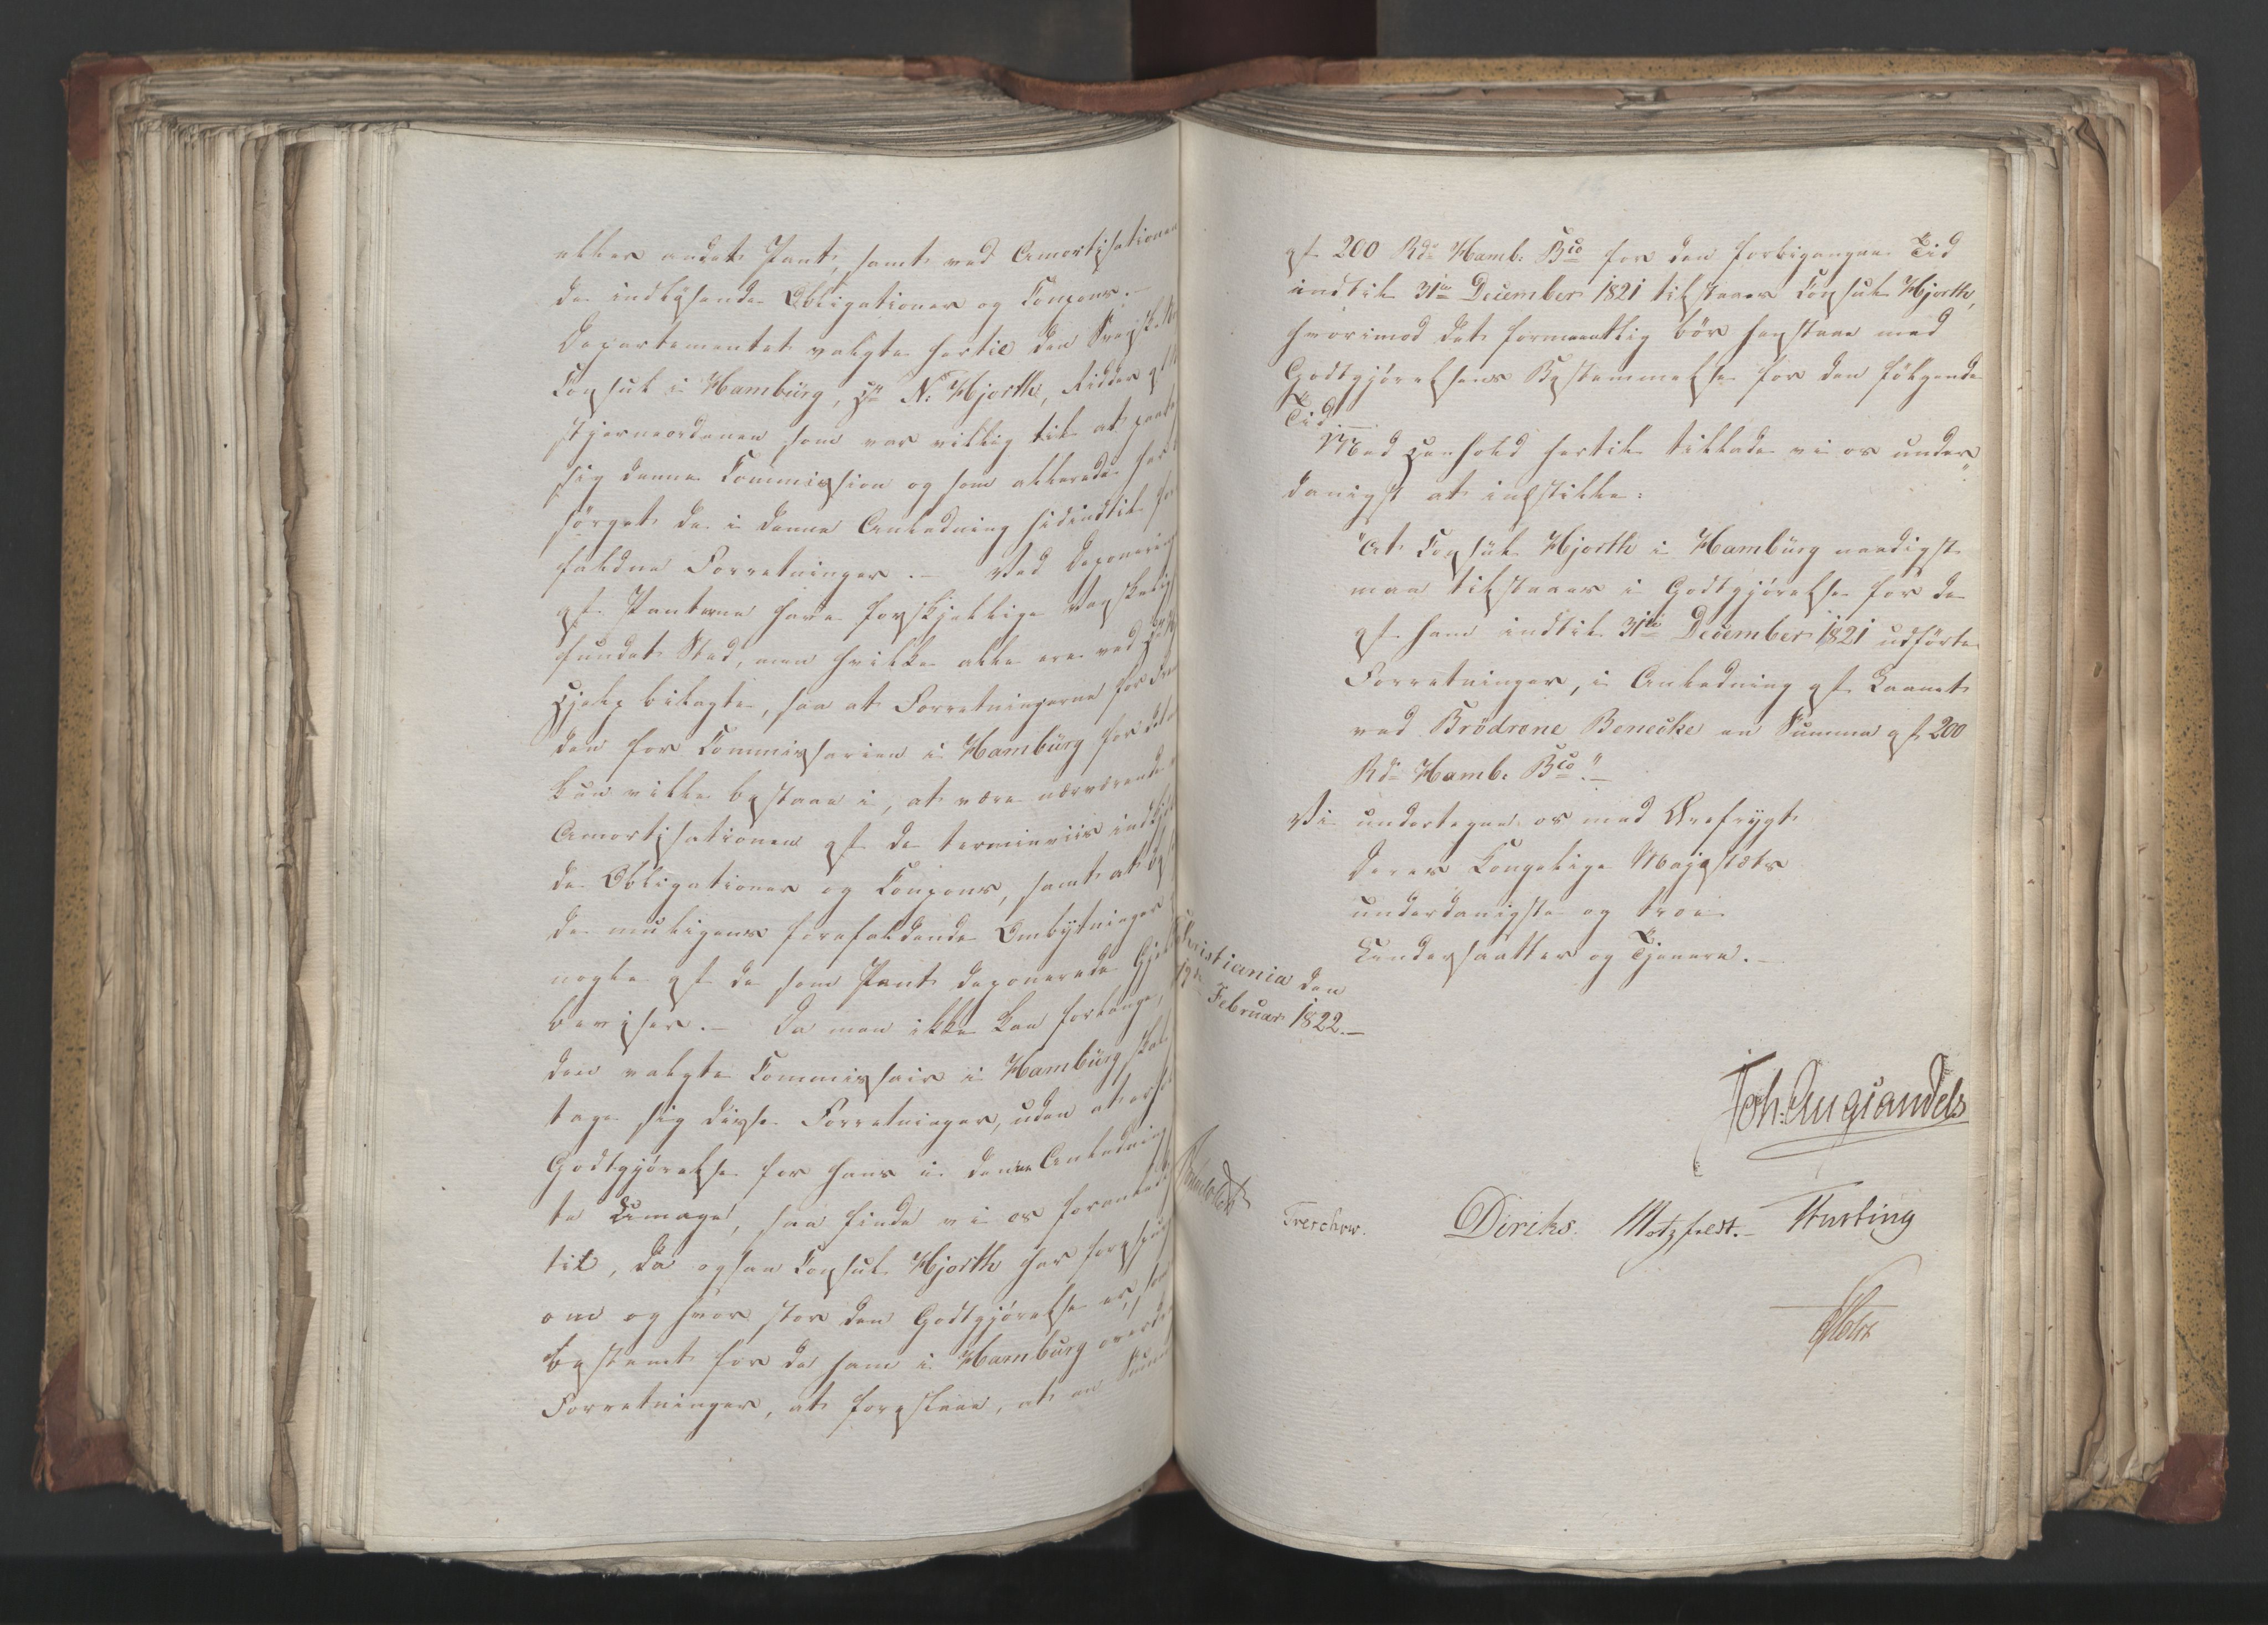 eller andet Pant, samt ved Amortisationen
de indløsende Obligationer og Coupons.-
Departementet valgte hertil den Svenske
Consul i Hambürg, Hr N: Hjorth, Ridder af
Stjerneordenen som var villig til at paata
sig denne Commission og som allerede har
sørget de i denne Anledning hidindtil fore
faldne Forretninger.- Ved Deponering
af Panterne have forskjellige
fundet Sted, men hvilke alle ere ved
Hjelp bilagte, saa at Forretningerne for Frem
den for Commissarien i Hambürg for det
kun ville bestaae i, at være nærværende
Amortisationen af de terminviis indløs
de Obligationer og Coupons, samt at be
de muligens forefaldende Ombytninger
nogle af de som Pant deponerede Gjel
beviser.- Da man ikke kan forlange,
den valgte Commissair i Hambürg skal
tage sig disse Forretninger, uden at er
Godtgjørelse for hans i denne Anledning
te Umage, saa finde vi os foranledi
til, da ogsaa Consul Hjorth har forespurgt
om og hvor stor den Godtgjørelse er, som
bestemt for de ham i Hamburg overd
Forretninger, at foreslaae, at en Summ
af 200 Rdr Hamb: Bco for den forbigangne Tid
indtil 31te December 1821 tilstaaes Consul Hjorth,
hvorimod det formeentlig bør henstaae med
Godtgjørelsens Bestemmelse for den følgende
Tid.-
Med Henhold hertil tillade vi os under„
danigst at indstille:
"At Consül Hjorth i Hambürg naadigst
maa tilstaaes i Godtgjørelse for de
af ham indtil 31te December 1821 udførte
Forretninger, i Anledning af Laanet
ved Brødrene Benecke en Summa af 200
Rdr Hamb: Bco".-
Vi undertegne os med Ærefrygt
Deres Kongelige Majestæts
underdanigste og troe
Undersaatter og Tjenere.-
Christiania den
19de Februar 1822.-
Joh: Aug: Sandels
Sommerfeldt
Treschow.
Diriks. Motzfeldt.- Fasting
Holst